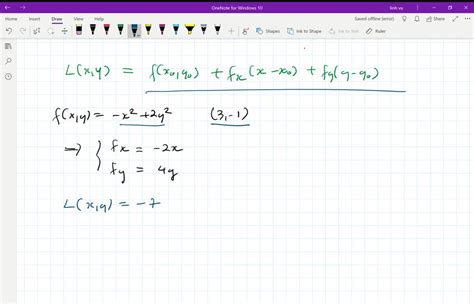 OneNote for Windows 10
linh vu
File Home Insert Draw View Help
Saved offline (error) Share
Shapes Ink to Shape Ink to Text Math
L(x,y) = f(x₀,y₀) + fₓ(x-x₀) + f_y(y-y₀)
f(x,y) = -x² + 2y² (3,-1)
⇒ { fx = -2x
fy = 4y
L(x,y) = -7